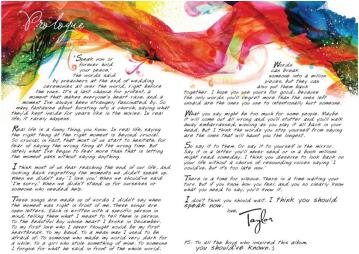 Prologue
"Speak now or
forever hold
your peace,"
the words said
by preachers at the end of wedding
ceremonies all over the world, right before
the vows. It's a last chance for protest, a
moment that makes everyone's heart race, and a
moment I've always been strangely fascinated by. So
many fantasize about bursting into a church, saying what
they'd kept inside for years like in the movies. In real
life, it rarely happens.
Real life is a funny thing, you know. In real life, saying
the right thing at the right moment is beyond crucial.
So crucial, in fact, that most of us start to hesitate, for
fear of saying the wrong thing at the wrong time. But
lately what I've begun to fear more than that is letting
the moment pass without saying anything.
I think most of us fear reaching the end of our life, and
looking back regretting the moments we didn't speak up.
When we didn't say 'I love you.' When we should've said
'I'm sorry.' When we didn't stand up for ourselves or
someone who needed help.
These songs are made up of words I didn't say when
the moment was right in front of me. These songs are
open letters. Each is written with a specific person in
mind, telling them what I meant to tell them in person.
To the beautiful boy whose heart I broke in December.
To my first love who I never thought would be my first
heartbreak. To my band. To a mean man I used to be
afraid of. To someone who made my world very dark for
a while. To a girl who stole something of mine. To someone
I forgive for what he said in front of the whole world.
Words
can break
someone into a million
pieces, but they can
also put them back
together. I hope you use yours for good, because
the only words you'll regret more than the ones left
unsaid are the ones you use to intentionally hurt someone.
What you say might be too much for some people. Maybe
it will come out all wrong and you'll stutter and you'll walk
away embarrassed, wincing as you play it all back in your
head. But I think the words you stop yourself from saying
are the ones that will haunt you the longest.
So say it to them. Or say it to yourself in the mirror.
Say it in a letter you'll never send or in a book millions
might read someday. I think you deserve to look back on
your life without a chorus of resounding voices saying 'I
could've, but it's too late now.'
There is a time for silence. There is a time waiting your
turn. But if you know how you feel, and you so clearly know
what you need to say, you'll know it.
I don't think you should wait. I think you should
speak now.
love,
Taylor
PS: To all the boys who inspired this album,
you should've known. :)